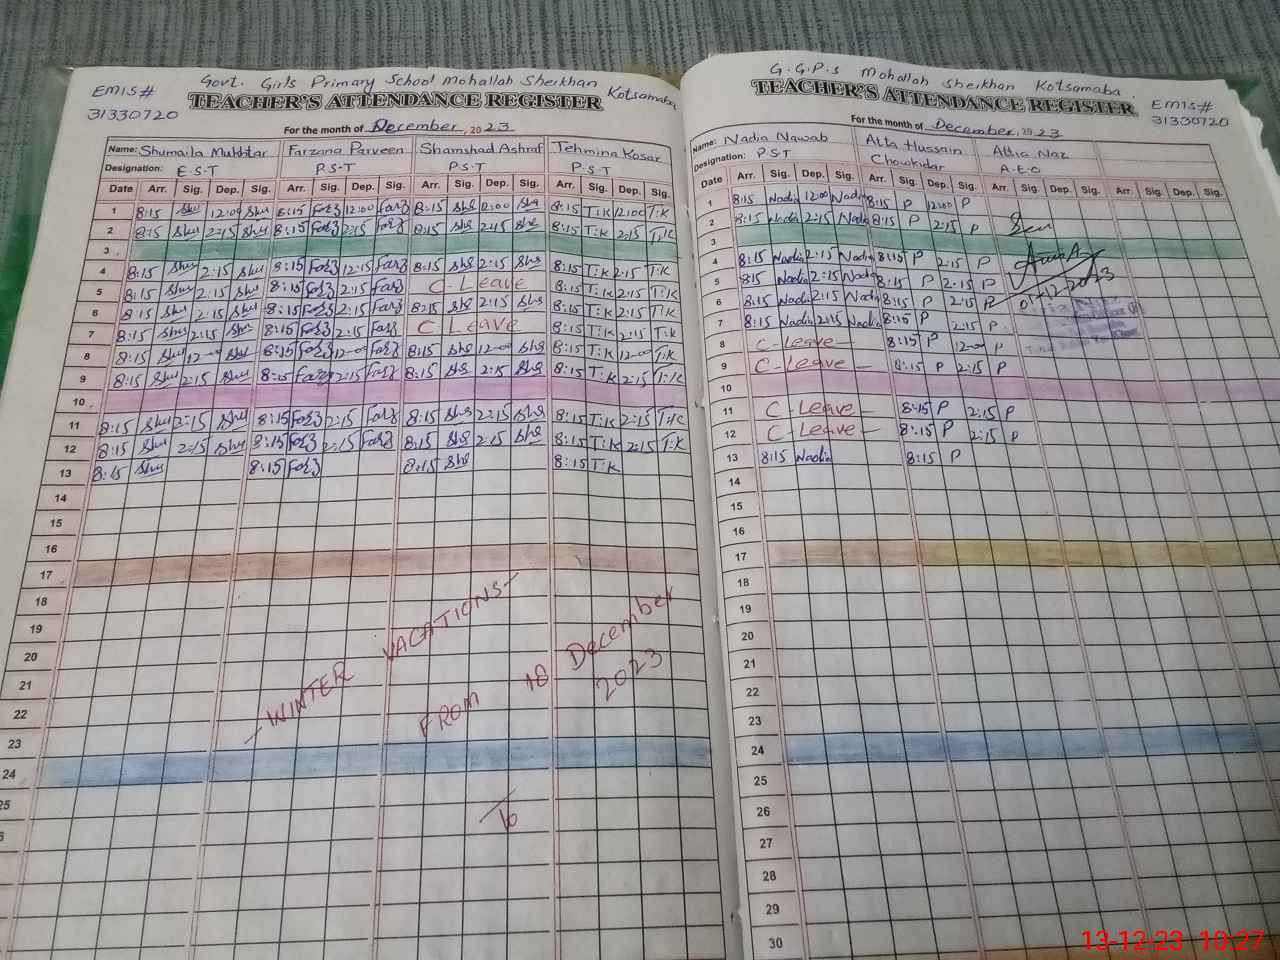 Govt. Girls Primary School Mohallah Sheikhan Kotsamaba
EMIS#
31330720
TEACHER'S ATTENDANCE REGISTER
For the month of December, 2023
Name: Shumaila Mukhtar Farzana Parveen Shamshad Ashraf Tehmina Kosar
Designation: E.S.T P.S.T P.S.T P.S.T
Date Arr. Sig. Dep. Sig. Arr. Sig. Dep. Sig. Arr. Sig. Dep. Sig. Arr. Sig. Dep. Sig.
1 8:15 Shu 12:00 Shu 8:15 Farz 12:00 Farz 8:15 Shs 12:00 Shs 8:15 T:K 12:00 T:K
2 8:15 Shu 2:15 Shu 8:15 Farz 2:15 Farz 8:15 Shs 2:15 Shs 8:15 T:K 2:15 T:K
3
4 8:15 Shu 2:15 Shu 8:15 Farz 12:15 Farz 8:15 Shs 2:15 Shs 8:15 T:K 2:15 T:K
5 8:15 Shu 2:15 Shu 8:15 Farz 2:15 Farz C-Leave 8:15 T:K 2:15 T:K
6 8:15 Shu 2:15 Shu 8:15 Farz 2:15 Farz 8:15 Shs 2:15 Shs 8:15 T:K 2:15 T:K
7 8:15 Shu 2:15 Shu 8:15 Farz 2:15 Farz C Leave 8:15 T:K 2:15 T:K
8 8:15 Shu 12-00 Shu 8:15 Farz 12-00 Farz 8:15 Shs 12-00 Shs 8:15 T:K 12-00 T:K
9 8:15 Shu 2:15 Shu 8:15 Farz 2:15 Farz 8:15 Shs 2:15 Shs 8:15 T:K 2:15 T:K
10
11 8:15 Shu 2:15 Shu 8:15 Farz 2:15 Farz 8:15 Shs 2:15 Shs 8:15 T:K 2:15 T:K
12 8:15 Shu 2:15 Shu 8:15 Farz 2:15 Farz 8:15 Shs 2:15 Shs 8:15 T:K 2:15 T:K
13 8:15 Shu 8:15 Farz 8:15 Shs 8:15 T:K
14
15
16
17
18
19
20
21
22
23
24
25
- WINTER VACATIONS -
FROM 18 December
2023
To
G.G.P.S Mohallah Sheikhan Kotsamaba.
TEACHER'S ATTENDANCE REGISTER
EMIS#
31330720
For the month of December, 2023
Name: Nadia Nawab Atta Hussain Attia Naz
Designation: P.S.T Chowkidar A.E.O
Date Arr. Sig. Dep. Sig. Arr. Sig. Dep. Sig. Arr. Sig. Dep. Sig. Arr. Sig. Dep. Sig.
1 8:15 Nadia 12:00 Nadia 8:15 P 12:00 P
2 8:15 Nadia 2:15 Nadia 8:15 P 2:15 P
3
4 8:15 Nadia 2:15 Nadia 8:15 P 2:15 P
5 8:15 Nadia 2:15 Nadia 8:15 P 2:15 P
6 8:15 Nadia 2:15 Nadia 8:15 P 2:15 P
7 8:15 Nadia 2:15 Nadia 8:15 P 2:15 P
8 C-Leave - 8:15 P 12-00 P
9 C-Leave - 8:15 P 2:15 P
10
11 C-Leave - 8:15 P 2:15 P
12 C-Leave - 8:15 P 2:15 P
13 8:15 Nadia 8:15 P
14
15
16
17
18
19
20
21
22
23
24
25
26
27
28
29
30
13-12-23 10:27